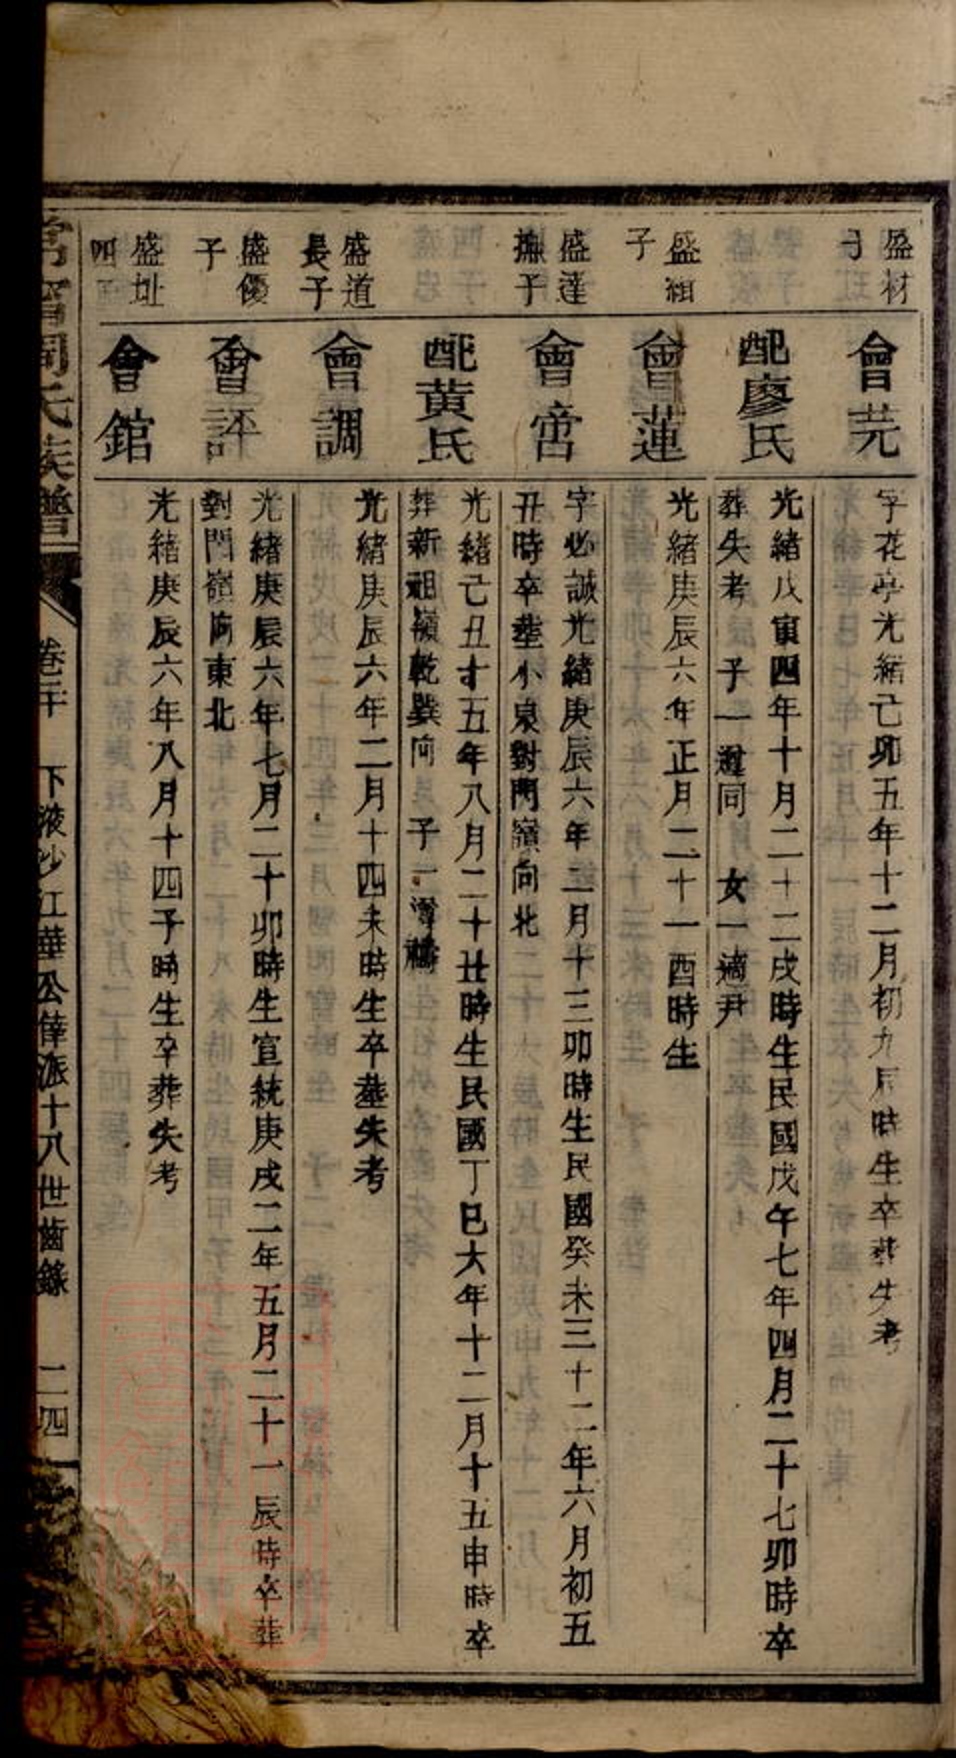 盛材
子
會芫
字花亭光緒己卯五年十二月初九辰時生卒葬失考
配廖氏
光緒戊寅四年十月二十二戌時生民國戊午七年四月二十七卯時卒
葬失考 子一 同 女一適尹
盛組
子
會蓮
光緒庚辰六年正月二十一酉時生
盛達
撫子
會啻
字必誠光緒庚辰六年二月十三卯時生民國癸未三十二年六月初五
丑時卒塟小泉對門嶺向北
配黃氏
光緒己丑十五年八月二十丑時生民國丁巳六年十二月十五申時卒
葬新祖嶺乾巽向 子二
盛道
長子
會調
光緒庚辰六年二月十四未時生卒塟失考
盛優
子
會評
光緒庚辰六年七月二十卯時生宣統庚戌二年五月二十一辰時卒葬
對門嶺向東北
盛址
四子
會館
光緒庚辰六年八月十四子時生卒葬失考
常甯周氏族譜
卷二十 下液沙江華公偉派十八世齒錄 二四